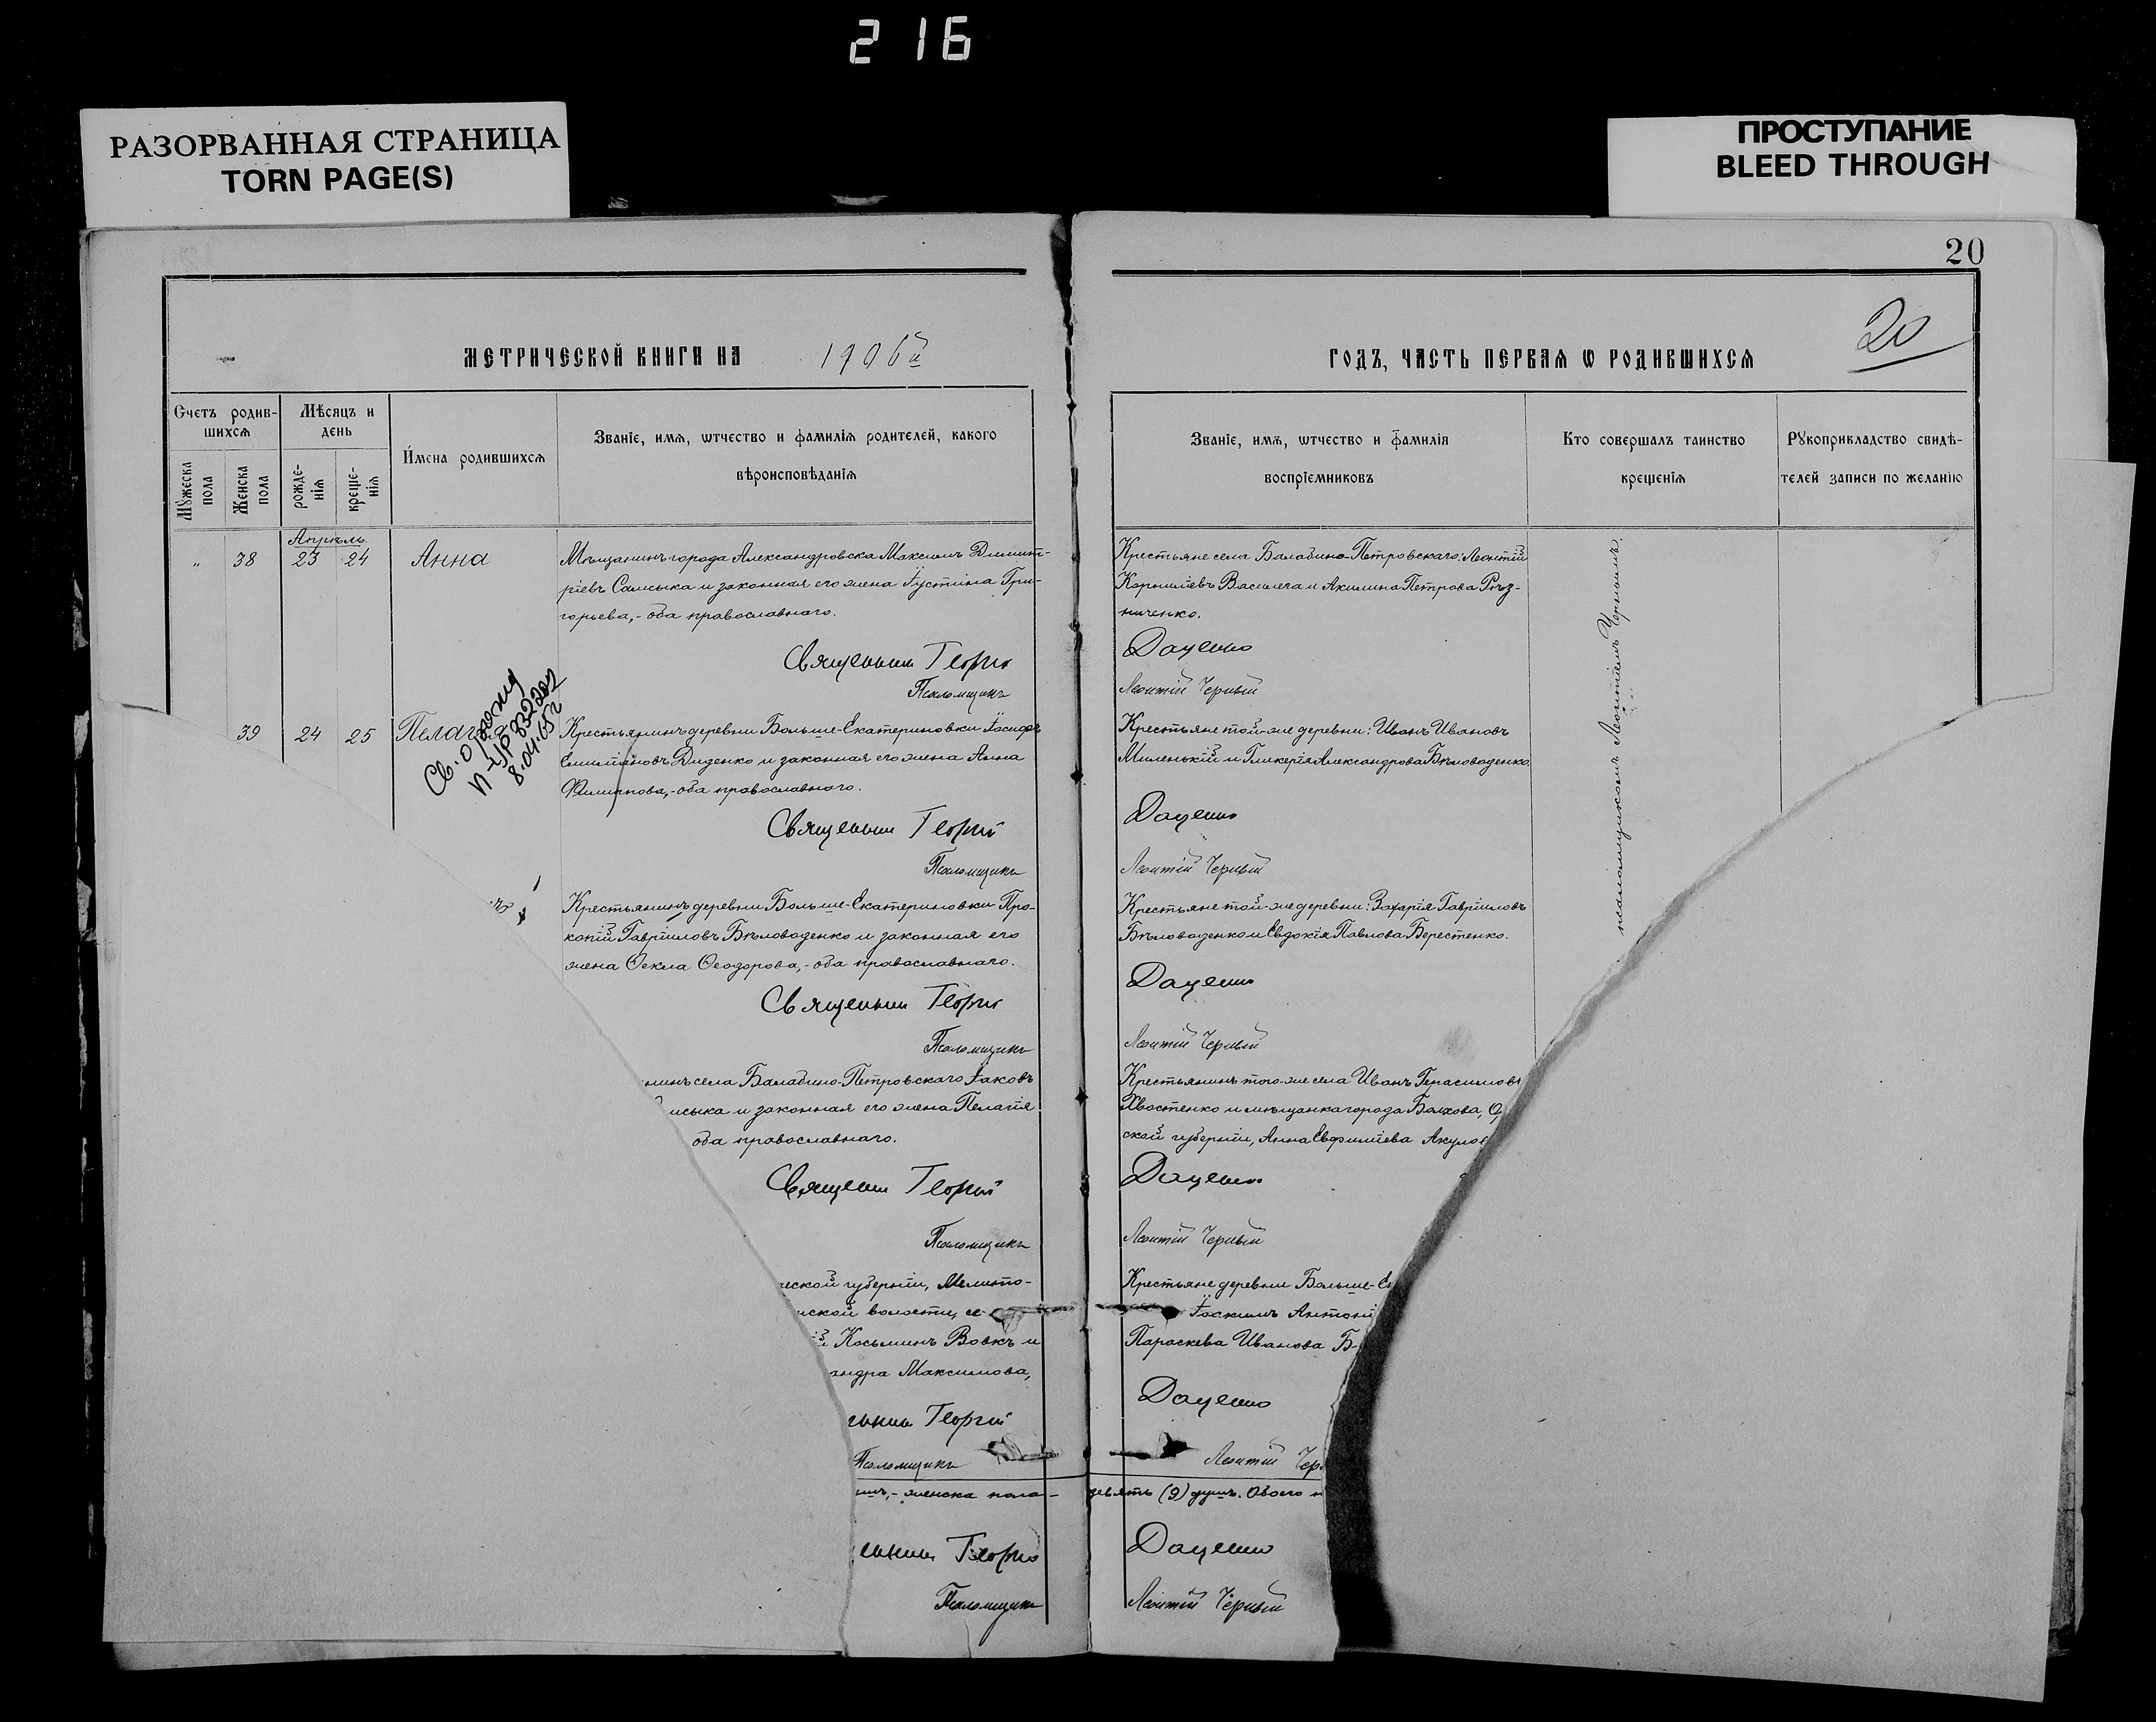 216
РАЗОРВАННАЯ СТРАНИЦА
TORN PAGE(S)
ПРОСТУПАНИЕ
BLEED THROUGH
20
20
МЕТРИЧЕСКОЙ КНИГИ НА 1906й
ГОДЪ, ЧАСТЬ ПЕРВАѦ Ѡ РОДИВШИХСѦ
Счетъ родив-
шихсѧ
Мѣсяцъ и
день
Мужеска
пола
Женска
пола
рожде-
нія
креще-
нія
Имена родившихсѧ
Званіе, имѧ, ѡтчество и фамиліѧ родителей, какого
вѣроисповѣданіѧ
Званіе, имѧ, ѡтчество и фамиліѧ
воспріемниковъ
Кто совершалъ таинство
крещеніѧ
Рукоприкладство свидѣ-
телей записи по желанію
Апрѣль
„ 38 23 24 Анна
Мѣщанинъ города Александровска Максимъ Димит-
ріевъ Самсыка и законная его жена Іустіна Гри-
горьева,- оба православнаго.
Священник Георгій
Псаломщикъ
Крестьяне села Балабино-Петровскаго: Леонтій
Корниліевъ Василега и Акилина Петрова Рѣз-
ниченко.
Даценко
Леонтій Черный
псаломщикомъ Леонтіемъ Чернымъ.
39 24 25 Пелагія
8.04.65г
Крестьянинъ деревни Больше-Екатериновки Іосифъ
Емиліановъ Диденко и законная его жена Анна
Филипова,- оба православнаго.
Священник Георгій
Псаломщикъ
Крестьяне той-же деревни: Иванъ Ивановъ
Миленькій и Гликерія Александрова Бѣловоденко.
Даценко
Леонтій Черный
Крестьянинъ деревни Больше-Екатериновки Про-
копій Гавріиловъ Бѣловоденко и законная его
жена Ѳекла Ѳеодорова,- оба православнаго.
Священник Георгій
Псаломщикъ
Крестьяне той-же деревни: Захарія Гавріиловъ
Бѣловоденко и Евдокія Павлова Берестенко.
Даценко
Леонтій Черный
нинъ села Балабино-Петровскаго Іаковъ
мсыка и законная его жена Пелагія
оба православнаго.
Священник Георгій
Псаломщикъ
Крестьянинъ того-же села Иванъ Герасимовъ
Хвостенко и мѣщанка города Болхова, О
ской губерніи, Анна Евфиміева Акулов
Даценко
Леонтій Черный
ческой губерніи, Мелито-
нской волости, се-
й Косьминъ Вовкъ и
андра Максимова,
енник Георгій
Псаломщикъ
Крестьяне деревни Больше-Ек
Іоакимъ Антоні
Параскева Иванова Б
Даценко
Леонтій Чер
шъ,- женска пола - девять (9) душъ. Обоего п
енник Георгій
Даценко
Псаломщикъ
Леонтій Черный